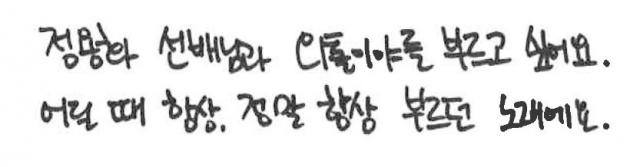 정용화 선배님과 외톨이야를 부르고 싶어요.
어릴 때 항상, 정말 항상 부르던 노래에요.